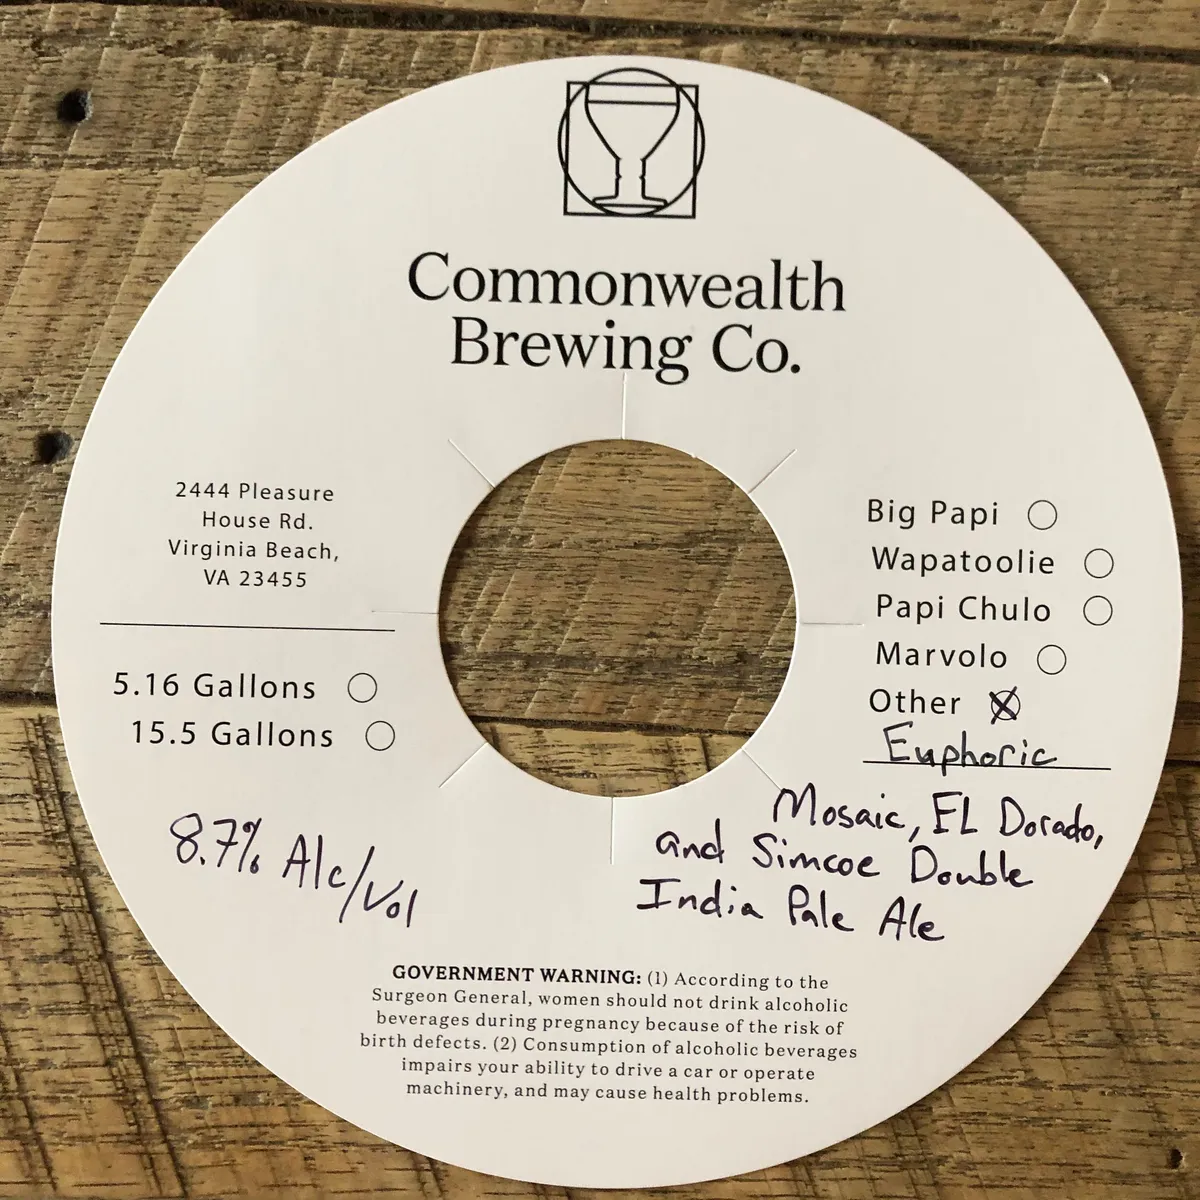 Commonwealth
Brewing Co.
2444 Pleasure
House Rd.
Virginia Beach,
VA 23455
5.16 Gallons
15.5 Gallons
8.7% Alc/Vol
Big Papi
Wapatoolie
Papi Chulo
Marvolo
Other
Euphoric
Mosaic, EL Dorado,
and Simcoe Double
India Pale Ale
GOVERNMENT WARNING: (1) According to the
Surgeon General, women should not drink alcoholic
beverages during pregnancy because of the risk of
birth defects. (2) Consumption of alcoholic beverages
impairs your ability to drive a car or operate
machinery, and may cause health problems.